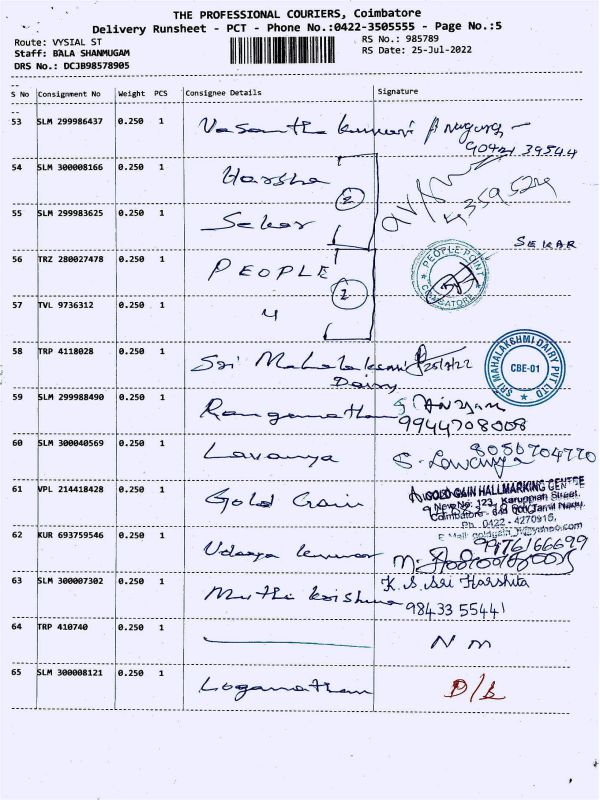 THE PROFESSIONAL COURIERS, Coimbatore
Delivery Runsheet - PCT - Phone No.:0422-3505555 - Page No.:5
Route: VYSIAL ST
RS No.: 985789
Staff: BALA SHANMUGAM
RS Date: 25-Jul-2022
DRS No.: DCJB98578905
S No Consignment No Weight PCS Consignee Details Signature
53 SLM 299986437 0.250 1 Vasantha kumari
90421 39544
54 SLM 300008166 0.250 1 Harsha
2
55 SLM 299983625 0.250 1 Sekar
SEKAR
56 TRZ 280027478 0.250 1 PEOPLE
PEOPLE POINT COIMBATORE
2
57 TVL 9736312 0.250 1 4
58 TRP 4118028 0.250 1 Sri Mahalaksmi Dairy
25/7/22
SRI MAHALAKSHMI DAIRY PVT LTD
CBE-01
59 SLM 299988490 0.250 1 Ranganathan
9944708008
60 SLM 300040569 0.250 1 Lavanya
8056704770
S. Lavanya
61 VPL 214418428 0.250 1 Gold Gain
GOLD GAIN HALLMARKING CENTRE
New No: 123, Karuppiah Street,
Coimbatore - 641 001 Tamil Nadu.
Ph: 0422 - 4270915,
62 KUR 693759546 0.250 1 Udaya kumar
9976166699
63 SLM 300007302 0.250 1 Muthu krishna
K. S. Sri Harshita
98433 55441
64 TRP 410740 0.250 1
N M
65 SLM 300008121 0.250 1 Loganathan
D/L